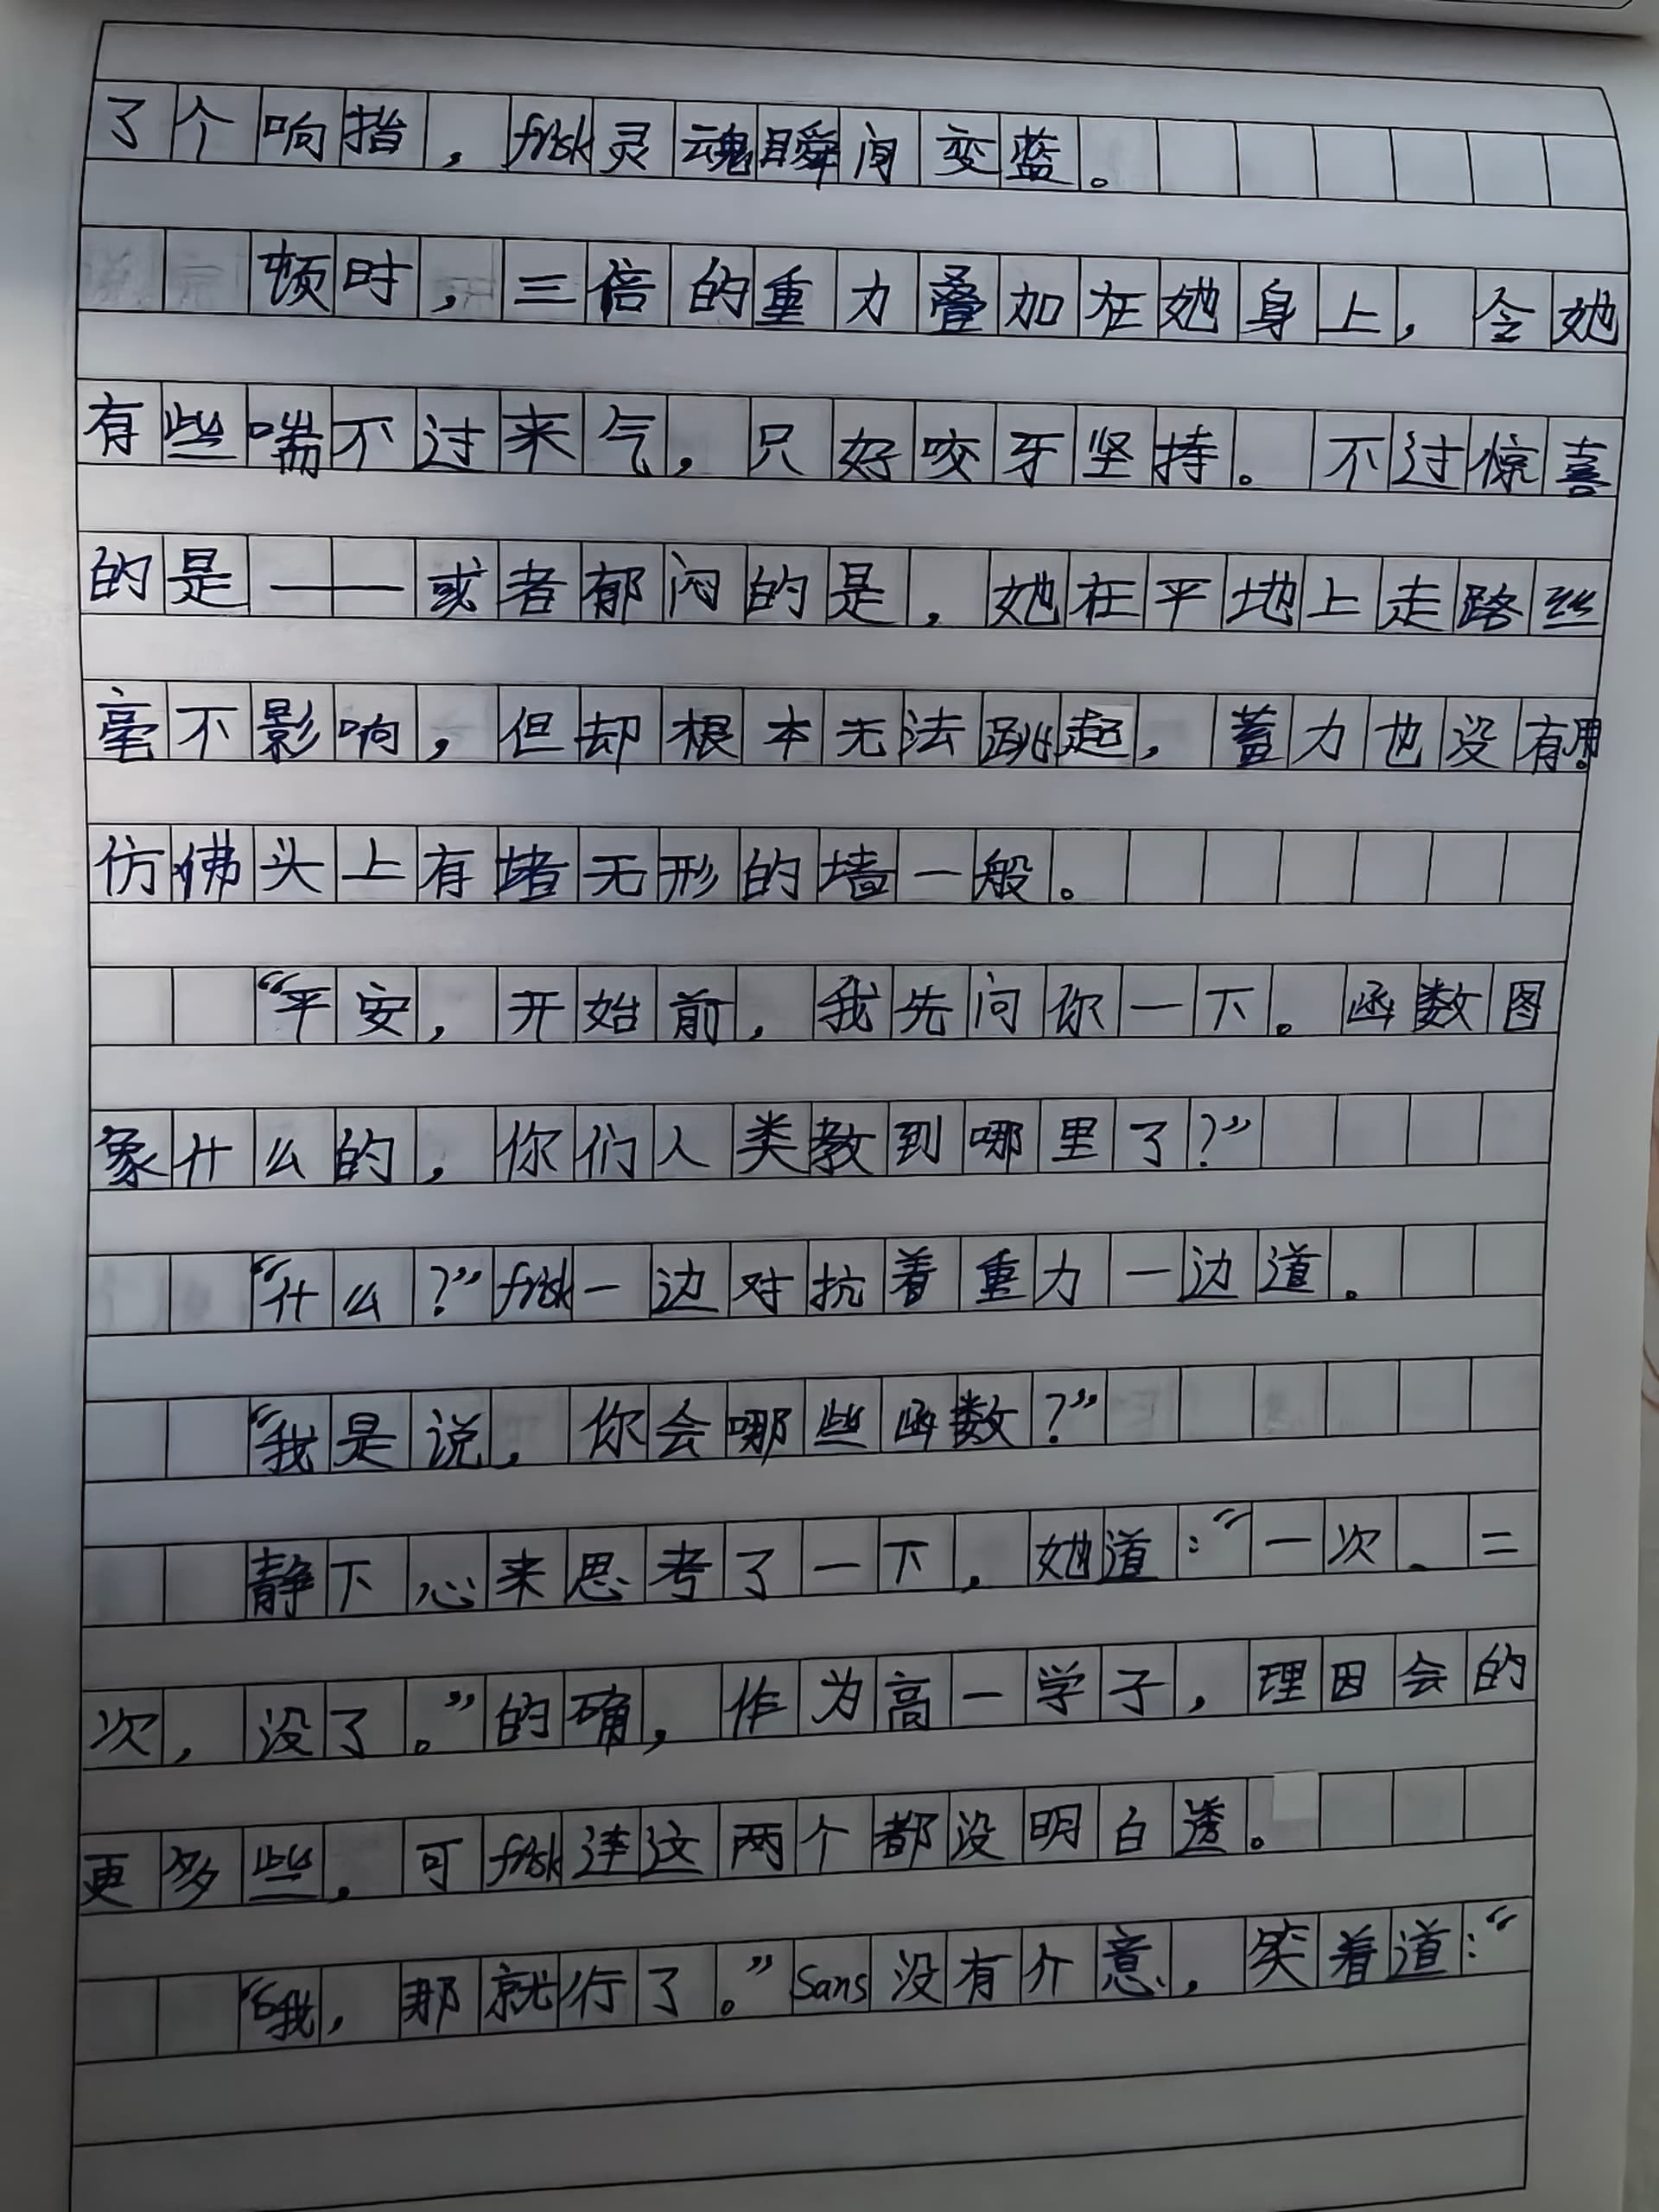 了个响指，frisk灵魂瞬间变蓝。
顿时，三倍的重力叠加在她身上，令她
有些喘不过来气，只好咬牙坚持。不过惊喜
的是——或者郁闷的是，她在平地上走路丝
毫不影响，但却根本无法跳起，蓄力也没有用。
仿佛头上有堵无形的墙一般。
“平安，开始前，我先问你一下。函数图
象什么的，你们人类教到哪里了？”
“什么？”frisk一边对抗着重力一边道。
“我是说，你会哪些函数？”
静下心来思考了一下，她道：“一次、二
次，没了。”的确，作为高一学子，理因会的
更多些，可frisk连这两个都没明白透。
“哦，那就行了。”Sans没有介意，笑着道：“